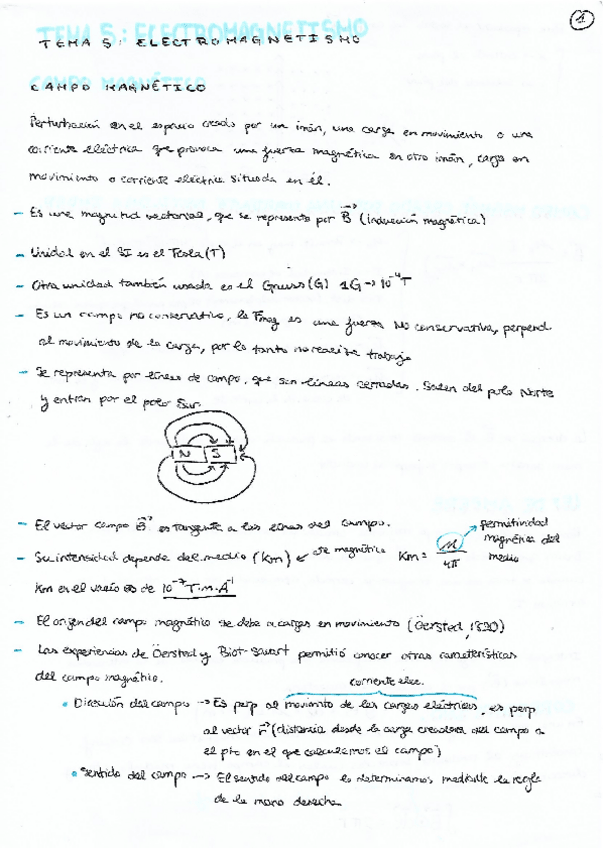 1
TEMA 5: ELECTROMAGNETISMO
CAMPO MAGNÉTICO
Perturbación en el espacio creado por un imán, una carga en movimiento o una
corriente eléctrica que provoca una fuerza magnética en otro imán, carga en
movimiento o corriente eléctrica situada en él.
- Es una magnitud vectorial, que se representa por B⃗ (inducción magnética)
- Unidad en el SI es el Tesla (T)
- Otra unidad también usada es el Gauss (G) 1G → 10⁻⁴T
- Es un campo no conservativo, la Fmag es una fuerza NO conservativa, perpend
al movimiento de la carga, por lo tanto no realiza trabajo
- Se representa por líneas de campo, que son líneas cerradas. Salen del polo Norte
y entran por el polo Sur.
N S
- El vector campo B⃗ es tangente a las líneas del campo.
- Su intensidad depende del medio (Km) ↙ cte magnética Km = μ/4π → permitividad
magnética del
medio
Km en el vacío es de 10⁻⁷ T·m·A⁻¹
- El origen del campo magnético se debe a cargas en movimiento (Oersted, 1820)
- Las experiencias de Oersted y Biot-Savart permitió conocer otras características
del campo magnético.
corriente elec.
• Dirección del campo → Es perp al movimiento de las cargas eléctricas, es perp
al vector r⃗ (distancia desde la carga creadora del campo a
el pto en el que calculamos el campo)
• Sentido del campo → El sentido del campo lo determinamos mediante la regla
de la mano derecha